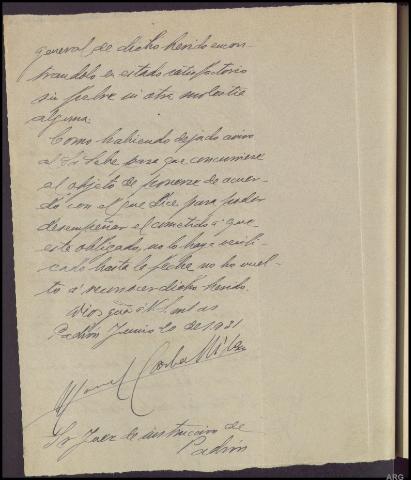 general de dicho herido encon-
trandolo en estado satisfactorio
sin fiebre ni otra molestia
alguna.
Como habiendo dejado aviso
al Sr para que concurriese
el objeto de ponerse de acuer-
do con el que dice para poder
desempeñar el cometido á que
este obligado, no lo haya verifi-
cado hasta la fecha no ho vuel-
to á reconocer dicho herido.
Dios gũe á V. S. m. as
Padrón Junio 20 de 1921
Manuel
Sr Juez de instruccion de
Padrón
ARG